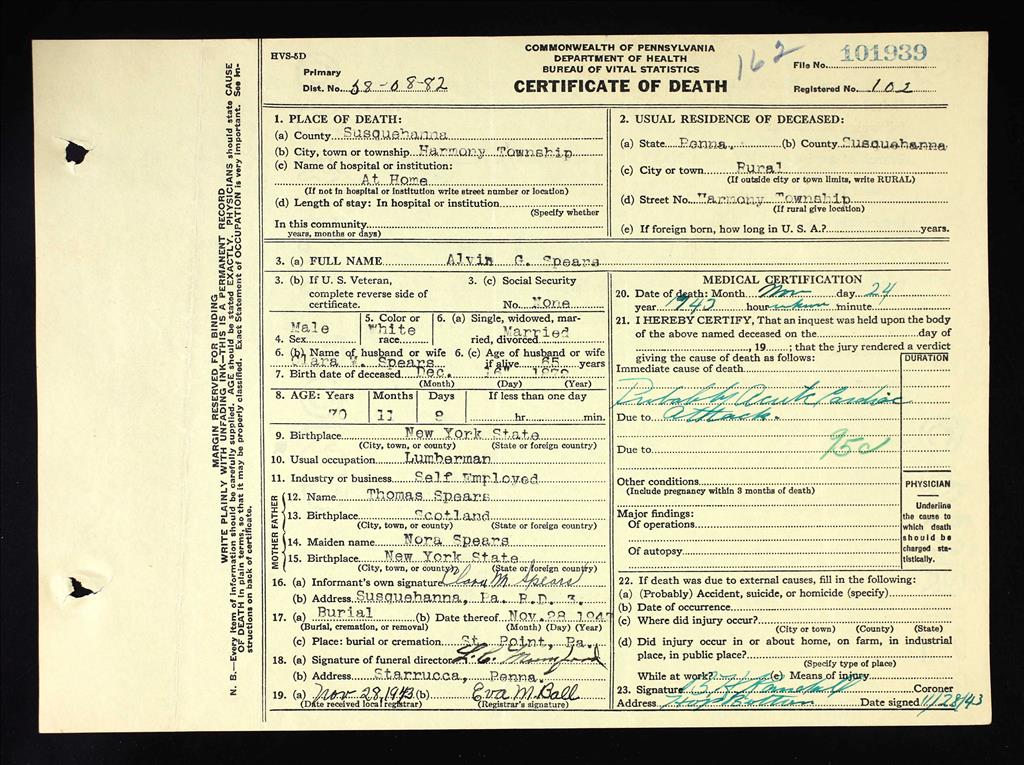 HVS-5D
COMMONWEALTH OF PENNSYLVANIA
DEPARTMENT OF HEALTH
BUREAU OF VITAL STATISTICS
CERTIFICATE OF DEATH
162
File No. 101939
Registered No. 102
Primary
Dist. No. 58-08-82
MARGIN RESERVED FOR BINDING
WRITE PLAINLY WITH UNFADING INK—THIS IS A PERMANENT RECORD
N. B.—Every item of information should be carefully supplied. AGE should be stated EXACTLY. PHYSICIANS should state CAUSE
OF DEATH in plain terms, so that it may be properly classified. Exact Statement of OCCUPATION is very important. See In-
structions on back of certificate.
1. PLACE OF DEATH:
(a) County Susquehanna
(b) City, town or township Harmony Township
(c) Name of hospital or institution:
At Home
(If not in hospital or institution write street number or location)
(d) Length of stay: In hospital or institution
(Specify whether
In this community
years, months or days)
2. USUAL RESIDENCE OF DECEASED:
(a) State Penna. (b) County Susquehanna
(c) City or town Rural
(If outside city or town limits, write RURAL)
(d) Street No. Harmony Township
(If rural give location)
(e) If foreign born, how long in U. S. A.? years.
3. (a) FULL NAME Alvin G. Spears
3. (b) If U. S. Veteran,
complete reverse side of
certificate.
3. (c) Social Security
No. None
4. Sex Male
5. Color or
race White
6. (a) Single, widowed, mar-
ried, divorced Married
6. (b) Name of husband or wife
Clara M. Spears
6. (c) Age of husband or wife
if alive 65 years
7. Birth date of deceased Dec.
(Month) (Day) (Year)
8. AGE: Years Months Days If less than one day
70 11 8 hr. min.
9. Birthplace New York State
(City, town, or county) (State or foreign country)
10. Usual occupation Lumberman
11. Industry or business Self Employed
FATHER
12. Name Thomas Spears
13. Birthplace Scotland
(City, town, or county) (State or foreign country)
MOTHER
14. Maiden name Nora Spears
15. Birthplace New York State
(City, town, or county) (State or foreign country)
16. (a) Informant's own signature Clara M. Spears
(b) Address Susquehanna, Pa. R.D. 3.
17. (a) Burial (b) Date thereof Nov. 28 1943
(Burial, cremation, or removal) (Month) (Day) (Year)
(c) Place: burial or cremation St. Point, Pa.
18. (a) Signature of funeral director
(b) Address Starrucca, Penna.
19. (a) Nov. 28, 1943 (b) Eva M. Ball
(Date received local registrar) (Registrar's signature)
MEDICAL CERTIFICATION
20. Date of death: Month Nov day 24
year 1943 hour minute
21. I HEREBY CERTIFY, That an inquest was held upon the body
of the above named deceased on the day of
, 19 ; that the jury rendered a verdict
giving the cause of death as follows:
DURATION
Immediate cause of death
Probably Acute Cardiac
Due to Attack.
Due to 95c
Other conditions
(Include pregnancy within 3 months of death)
Major findings:
Of operations
Of autopsy
PHYSICIAN
Underline
the cause to
which death
should be
charged sta-
tistically.
22. If death was due to external causes, fill in the following:
(a) (Probably) Accident, suicide, or homicide (specify)
(b) Date of occurrence
(c) Where did injury occur?
(City or town) (County) (State)
(d) Did injury occur in or about home, on farm, in industrial
place, in public place?
(Specify type of place)
While at work? (e) Means of injury
23. Signature Coroner
Address Hop Bottom Date signed 11/28/43